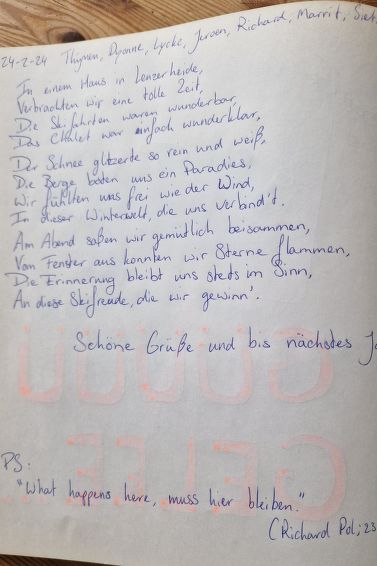 24-2-24 Thymen, Dyonne, Lycke, Jeroen, Richard, Marrit, Siet
In einem Haus in Lenzerheide,
Verbrachten wir eine tolle Zeit,
Die Skifahrten waren wunderbar,
Das Chalet war einfach wunderklar,
Der Schnee glitzerte so rein und weiß,
Die Berge boten uns ein Paradies,
Wir fühlten uns frei wie der Wind,
In dieser Winterwelt, die uns verbind't.
Am Abend saßen wir gemütlich beisammen,
Vom Fenster aus konnten wir Sterne flammen,
Die Erinnerung bleibt uns stets im Sinn,
An diese Skifreude, die wir gewinn'.
Schöne Grüße und bis nächstes Ja
PS:
"What happens here, muss hier bleiben."
(Richard Pol; 23